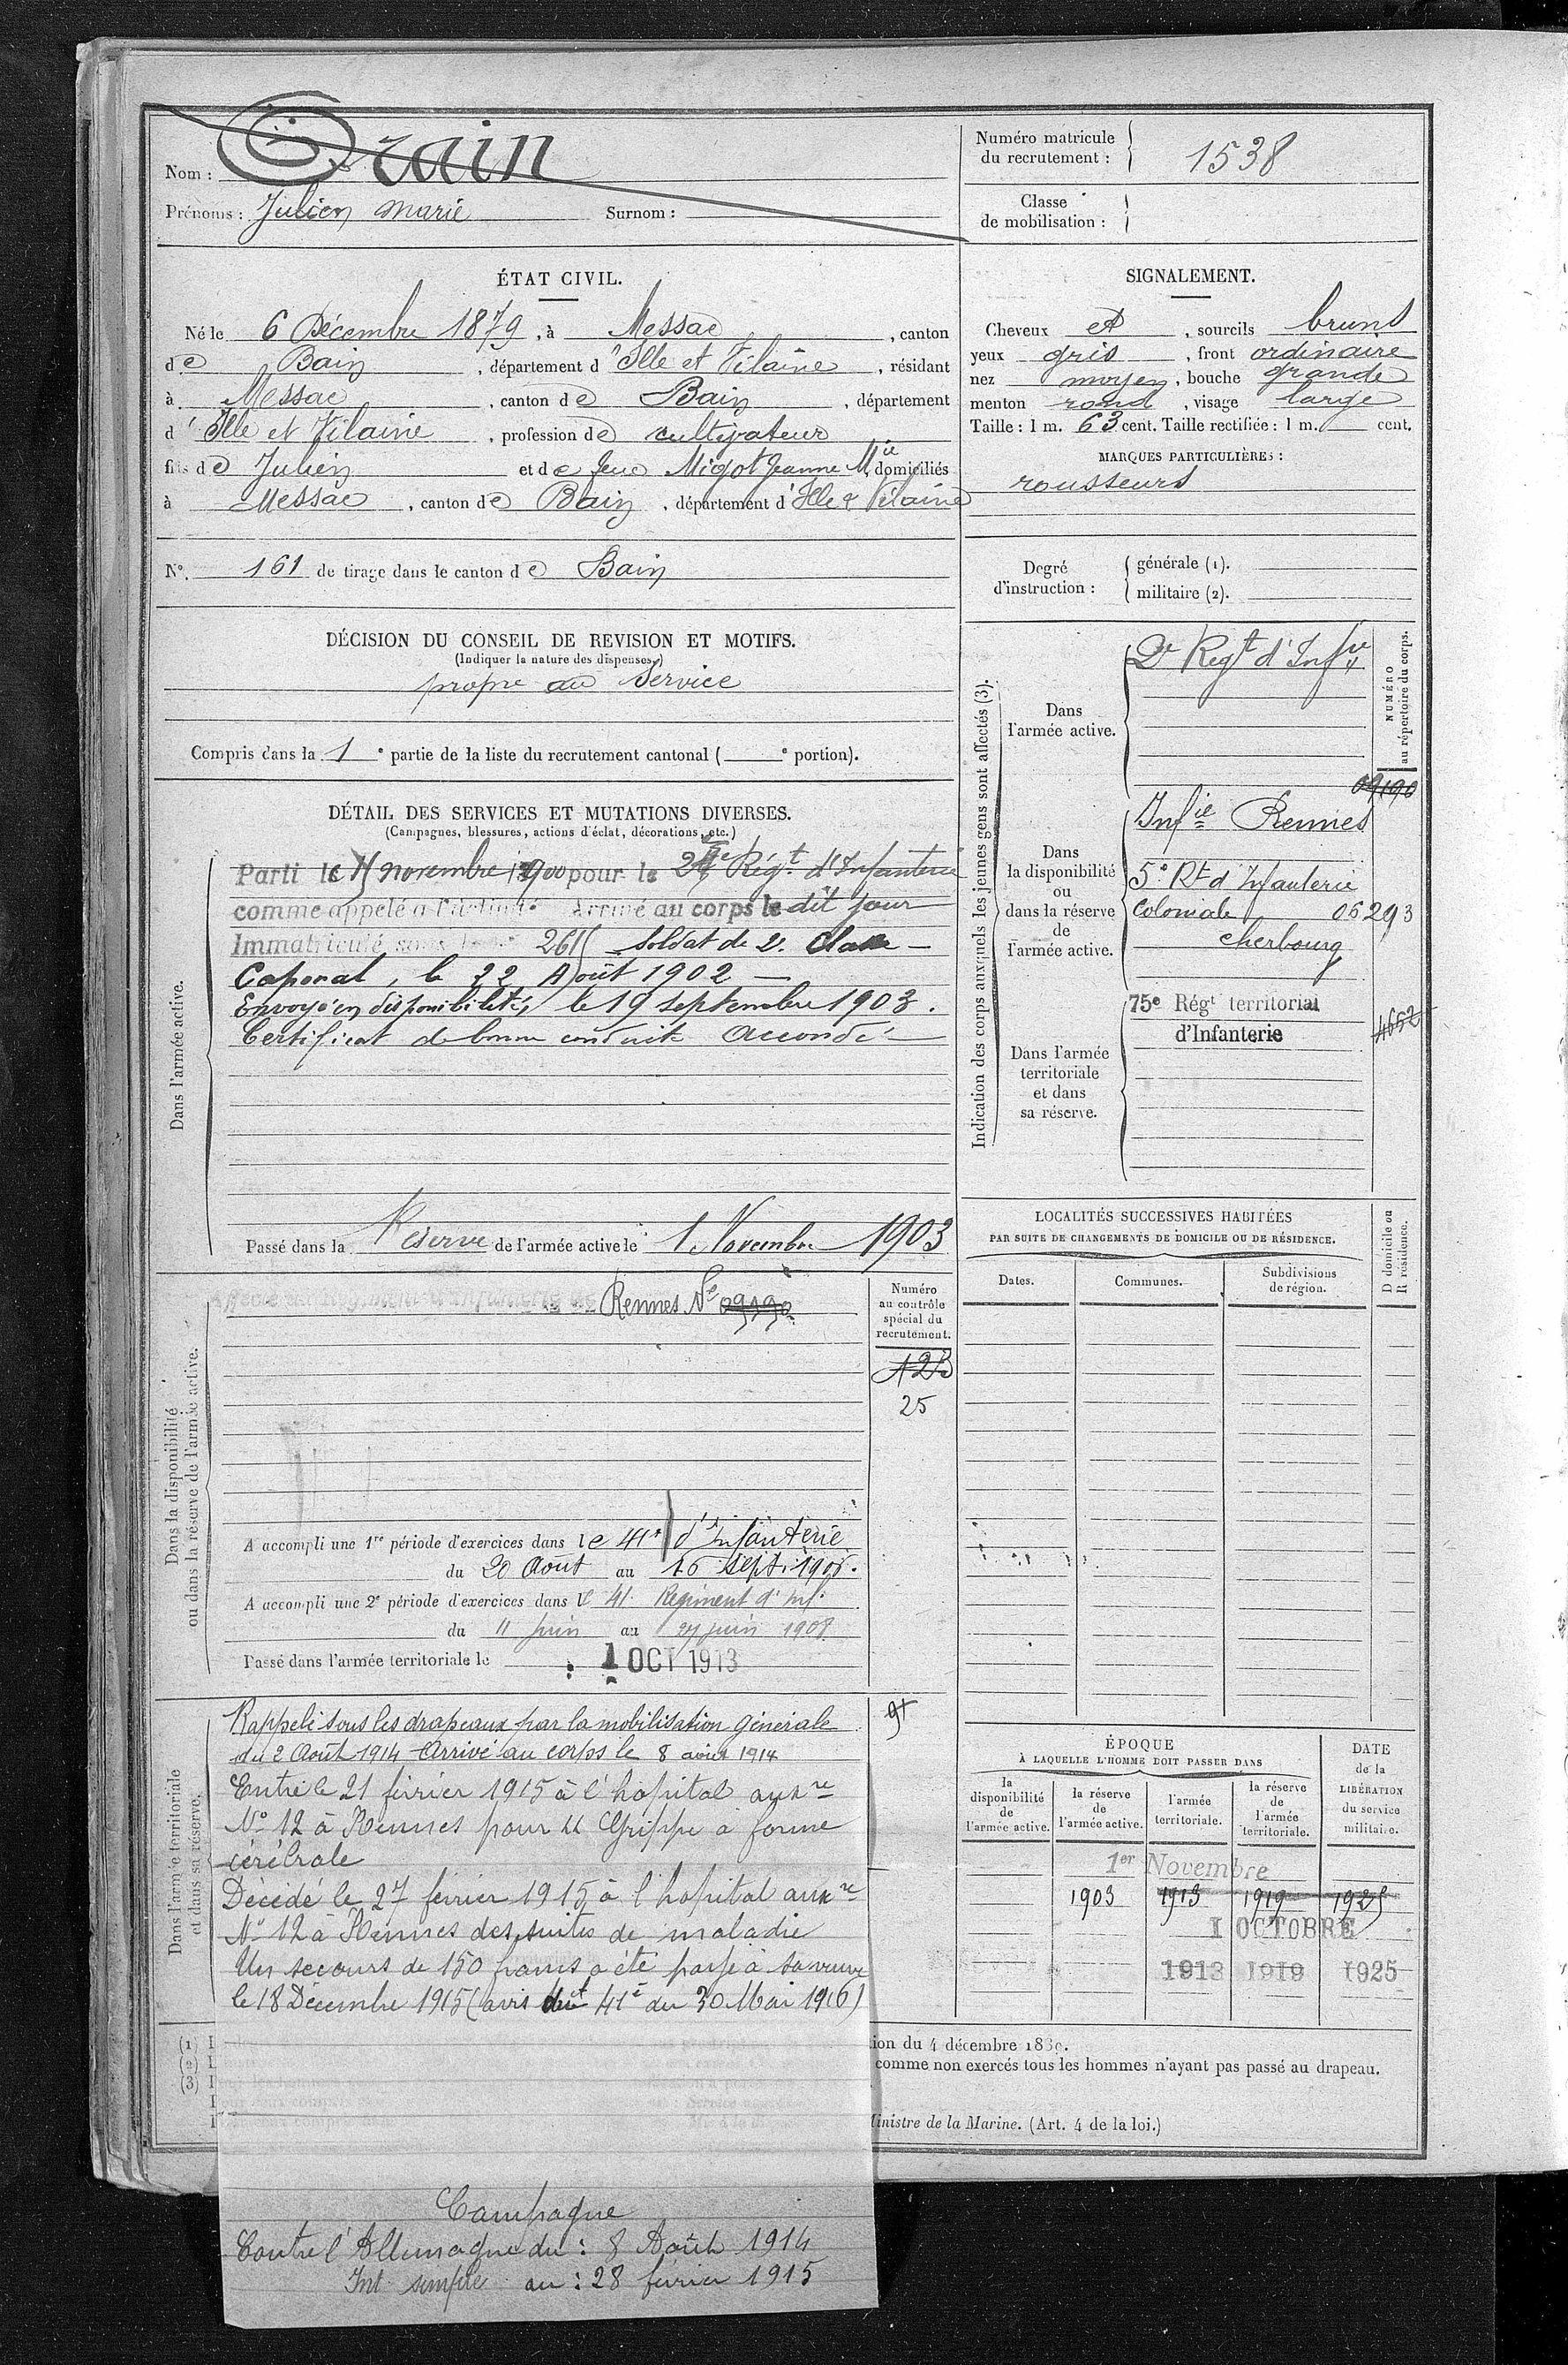 Nom : Orain
Prénoms : Julien Marie Surnom :
Numéro matricule du recrutement : 1538
Classe de mobilisation :
ÉTAT CIVIL.
Né le 6 Décembre 1879, à Messac, canton
de Bain, département d'Ille et Vilaine, résidant
à Messac, canton de Bain, département
d'Ille et Vilaine, profession de cultivateur
fils de Julien et de feue Migot Jeanne Mie, domiciliés
à Messac, canton de Bain, département d'Ille & Vilaine
N° 161 de tirage dans le canton de Bain
SIGNALEMENT.
Cheveux et, sourcils bruns
yeux gris, front ordinaire
nez moyen, bouche grande
menton rond, visage large
Taille : 1 m. 63 cent. Taille rectifiée : 1 m. cent.
MARQUES PARTICULIÈRES :
rousseurs
Degré d'instruction :
générale (1).
militaire (2).
DÉCISION DU CONSEIL DE REVISION ET MOTIFS.
(Indiquer la nature des dispenses.)
propre au service
Compris dans la 1e partie de la liste du recrutement cantonal ( e portion).
DÉTAIL DES SERVICES ET MUTATIONS DIVERSES.
(Campagnes, blessures, actions d'éclat, décorations, etc.)
Dans l'armée active.
Parti le novembre 1900 pour le 2e Régt d'Infanterie
comme appelé à l'activité Arrivé au corps le dit jour
Immatriculé sous le Soldat de 2e Classe
Caporal, le 22 Août 1902
Envoyé en disponibilité, le 19 septembre 1903.
Certificat de bonne conduite Accordé
Passé dans la Réserve de l'armée active le 1 Novembre 1903
Indication des corps auxquels les jeunes gens sont affectés (3).
NUMÉRO au répertoire du corps.
Dans l'armée active.
2e Regt d'Infie
09190
Dans la disponibilité ou dans la réserve de l'armée active.
Infie Rennes
5e Rt d'Infanterie
Coloniale 05293
Cherbourg
Dans l'armée territoriale et dans sa réserve.
75e Régt territorial
d'Infanterie
4652
LOCALITÉS SUCCESSIVES HABITÉES
PAR SUITE DE CHANGEMENTS DE DOMICILE OU DE RÉSIDENCE.
Dates. Communes. Subdivisions de région.
D domicile ou R résidence.
Dans la disponibilité ou dans la réserve de l'armée active.
Rennes No 09190
Numéro au contrôle spécial du recrutement.
25
A accompli une 1re période d'exercices dans le 41e d'Infanterie
du 20 Août au 16 sept. 1906.
A accompli une 2e période d'exercices dans le 41 Régiment d'Inf.
du 11 juin au 27 juin 1908
Passé dans l'armée territoriale le 1 OCT 1913
Dans l'armée territoriale et dans sa réserve.
Rappelé sous les drapeaux par la mobilisation générale
du 2 Août 1914 Arrivé au corps le 8 août 1914
Entré le 21 février 1915 à l'hôpital auxre
No 12 à Rennes pour Grippe à forme
cérébrale
Décédé le 27 février 1915 à l'hopital auxre
No 12 à Rennes des suites de maladie
Un secours de 150 francs a été payé à sa veuve
le 18 Décembre 1915 (avis du 41e du 30 Mai 1916)
ÉPOQUE
À LAQUELLE L'HOMME DOIT PASSER DANS
la disponibilité de l'armée active.
la réserve de l'armée active.
l'armée territoriale.
la réserve de l'armée territoriale.
DATE de la LIBÉRATION du service militaire.
1er Novembre
1903 1913 1919 1925
1 OCTOBRE
1913 1919 1925
(1)
(2)
(3)
ion du 4 décembre 1889.
comme non exercés tous les hommes n'ayant pas passé au drapeau.
Ministre de la Marine. (Art. 4 de la loi.)
Campagne
Contre l'Allemagne du : 8 Août 1914
Int simple au : 28 février 1915